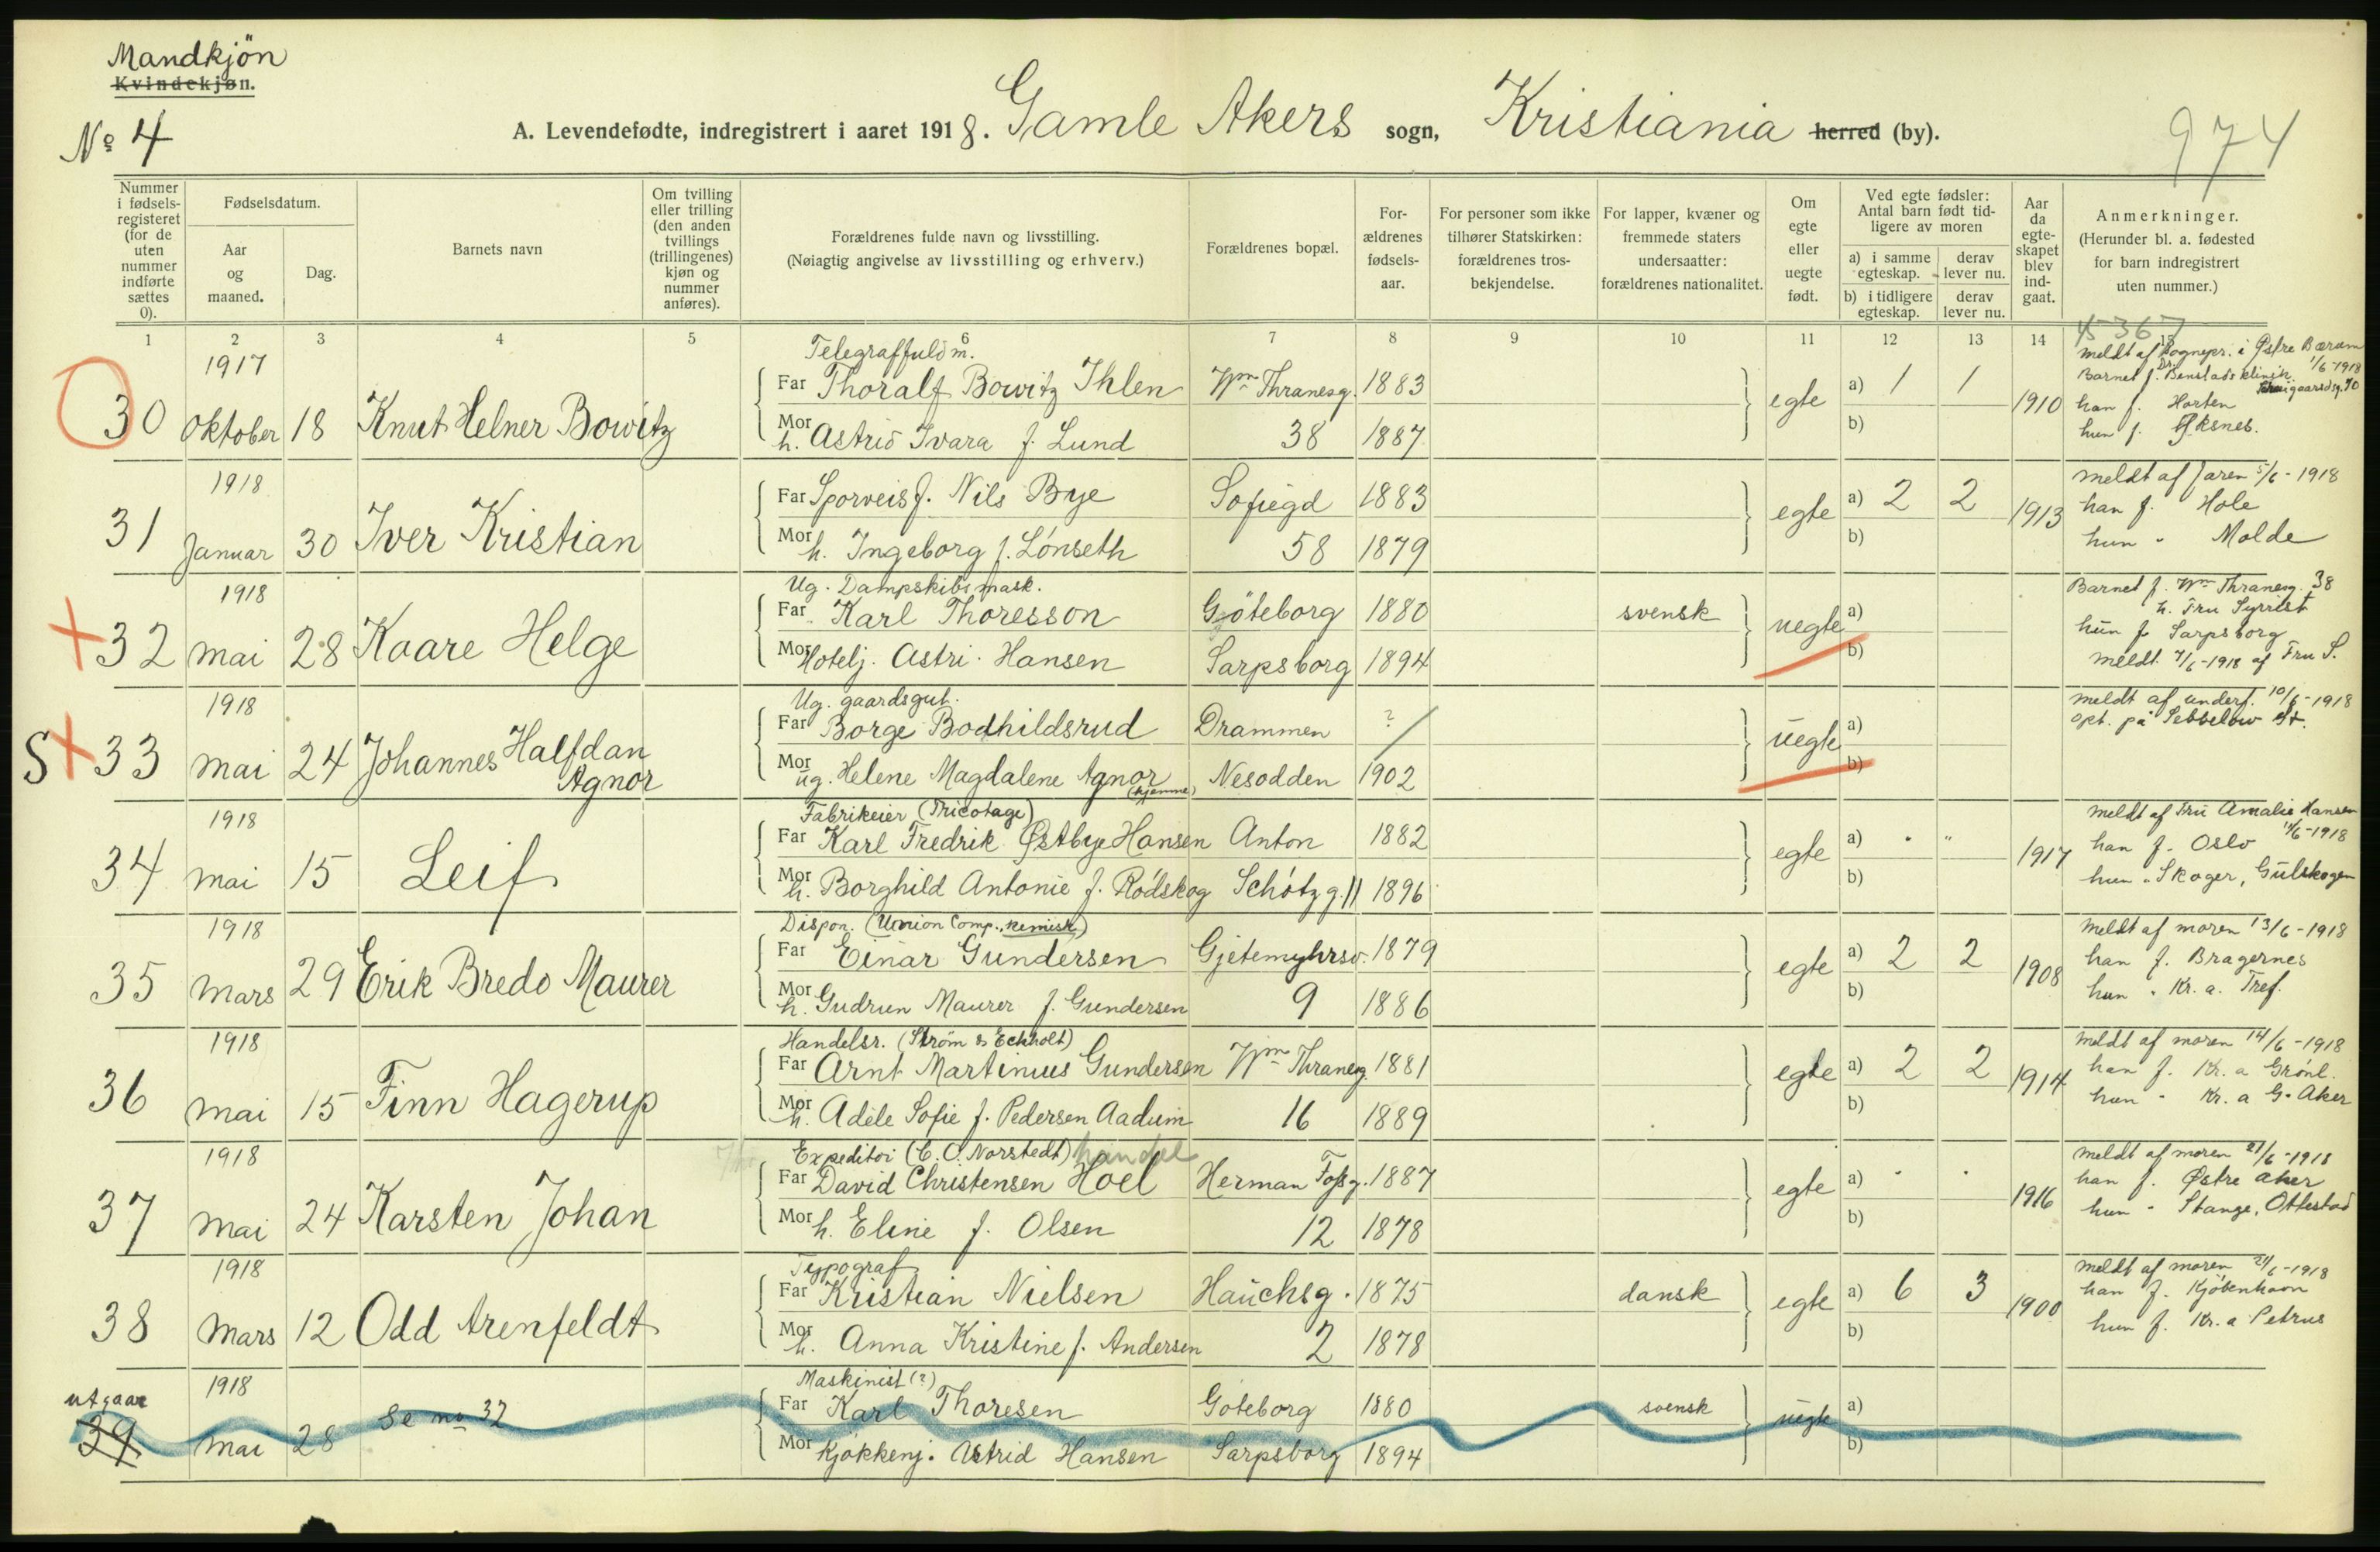 Mandkjön
Kvindekjøn.
No 4
A. Levendefødte, indregistrert i aaret 1918. Gamle Akers sogn, Kristiania herred (by).
974
Nummer i fødsels-registeret (for de uten nummer indførte sættes 0).
Fødselsdatum.
Aar og maaned.
Dag.
Barnets navn
Om tvilling eller trilling (den anden tvillings (trillingenes) kjøn og nummer anføres).
Forældrenes fulde navn og livsstilling.
(Nøiagtig angivelse av livsstilling og erhverv.)
Forældrenes bopæl.
For-ældrenes fødsels-aar.
For personer som ikke tilhører Statskirken: forældrenes tros-bekjendelse.
For lapper, kvæner og fremmede staters undersaatter: forældrenes nationalitet.
Om egte eller uegte født.
Ved egte fødsler: Antal barn født tid-ligere av moren
a) i samme egteskap. derav lever nu.
b) i tidligere egteskap. derav lever nu.
Aar da egte-skapet blev ind-gaat.
Anmerkninger.
(Herunder bl. a. fødested for barn indregistrert uten nummer.)
1 2 3 4 5 6 7 8 9 10 11 12 13 14 15
45367
1917 Telegraffuldm. meldt af Sognepr. i Østre Bærum 1/6-1918
Far Thoralf Bowitz Ihlen Wm Thranesg. 1883 a) 1 1 Barnet f. Dr. Benstads klinik
30 oktober 18 Knut Helner Bowitz egte 1910 han f. Horten
Mor h. Astrid Ivara f. Lund 38 1887 b) hun f.
1918 Far Sporveisf. Nils Bye Sofiegd 1883 a) 2 2 meldt af faren 5/6-1918
31 Januar 30 Iver Kristian egte 1913 han f. Hole
Mor h. Ingeborg f. Lónseth 58 1879 b) hun " Molde
1918 Ug. Dampskibsmask. Barnet f. Wm Thranesg. 38
Far Karl Thoresson Göteborg 1880 svensk a) h. Fru Syrrist
32 mai 28 Kaare Helge uegte hun f. Sarpsborg
Mor Hotelj. Astri Hansen Sarpsborg 1894 b) meldt 7/6-1918 af Fru S.
1918 Ug. gaardsgut. meldt af underf. 10/6-1918
Far Borge Bodhildsrud Drammen ? a) opt. på Sebbelow St.
S 33 mai 24 Johannes Halfdan Agnor uegte
Mor ug. Helene Magdalene Agnor (hjemme) Nesodden 1902 b)
1918 Fabrikeier (Tricotage) meldt af Fru Amalie Hansen
Far Karl Fredrik Østbye Hansen Anton 1882 a) " " 11/6-1918
34 mai 15 Leif egte 1917 han f. Oslo
Mor h. Borghild Antonie f. Rødskog Schøtz g. 11 1896 b) hun " Skoger, Gulskogen
1918 Dispon. (Union Comp., kemisk) meldt af moren 13/6-1918
Far Einar Gundersen Gjetemyhrsv. 1879 a) 2 2 han f. Bragernes
35 mars 29 Erik Bredo Maurer egte 1908 hun " Kr. a. Tref.
Mor h. Gudrun Maurer f. Gundersen 9 1886 b)
1918 Handelsr. (Strøm & Eckholt) meldt af moren 14/6-1918
Far Arnt Martinius Gundersen Wm Thranesg. 1881 a) 2 2 han f. Kr. a Grönl.
36 mai 15 Finn Hagerup egte 1914 hun " Kr. a G. Aker
Mor h. Adèle Sofie f. Pedersen Aadum 16 1889 b)
1918 Expeditør (C. O. Norstedt) handel meldt af moren 21/6-1918
Far David Christensen Hoel Herman Fossg. 1887 a) " " han f. Østre Aker
37 mai 24 Karsten Johan egte 1916 hun " Stange, Ottestad
Mor h. Eline f. Olsen 12 1878 b)
1918 Typograf meldt af moren 21/6-1918
Far Kristian Nielsen Hauchsg. 1875 dansk a) 6 3 han f. Kjöbenhavn
38 mars 12 Odd Arenfeldt egte 1900 hun f. Kr. a Petrus
Mor h. Anna Kristine f. Andersen 2 1878 b)
1918 Maskinist (?)
utgaar Far Karl Thoresen Göteborg 1880 svensk a)
39 mai 28 Se no 32 uegte
Mor Kjøkkenj. Astrid Hansen Sarpsborg 1894 b)